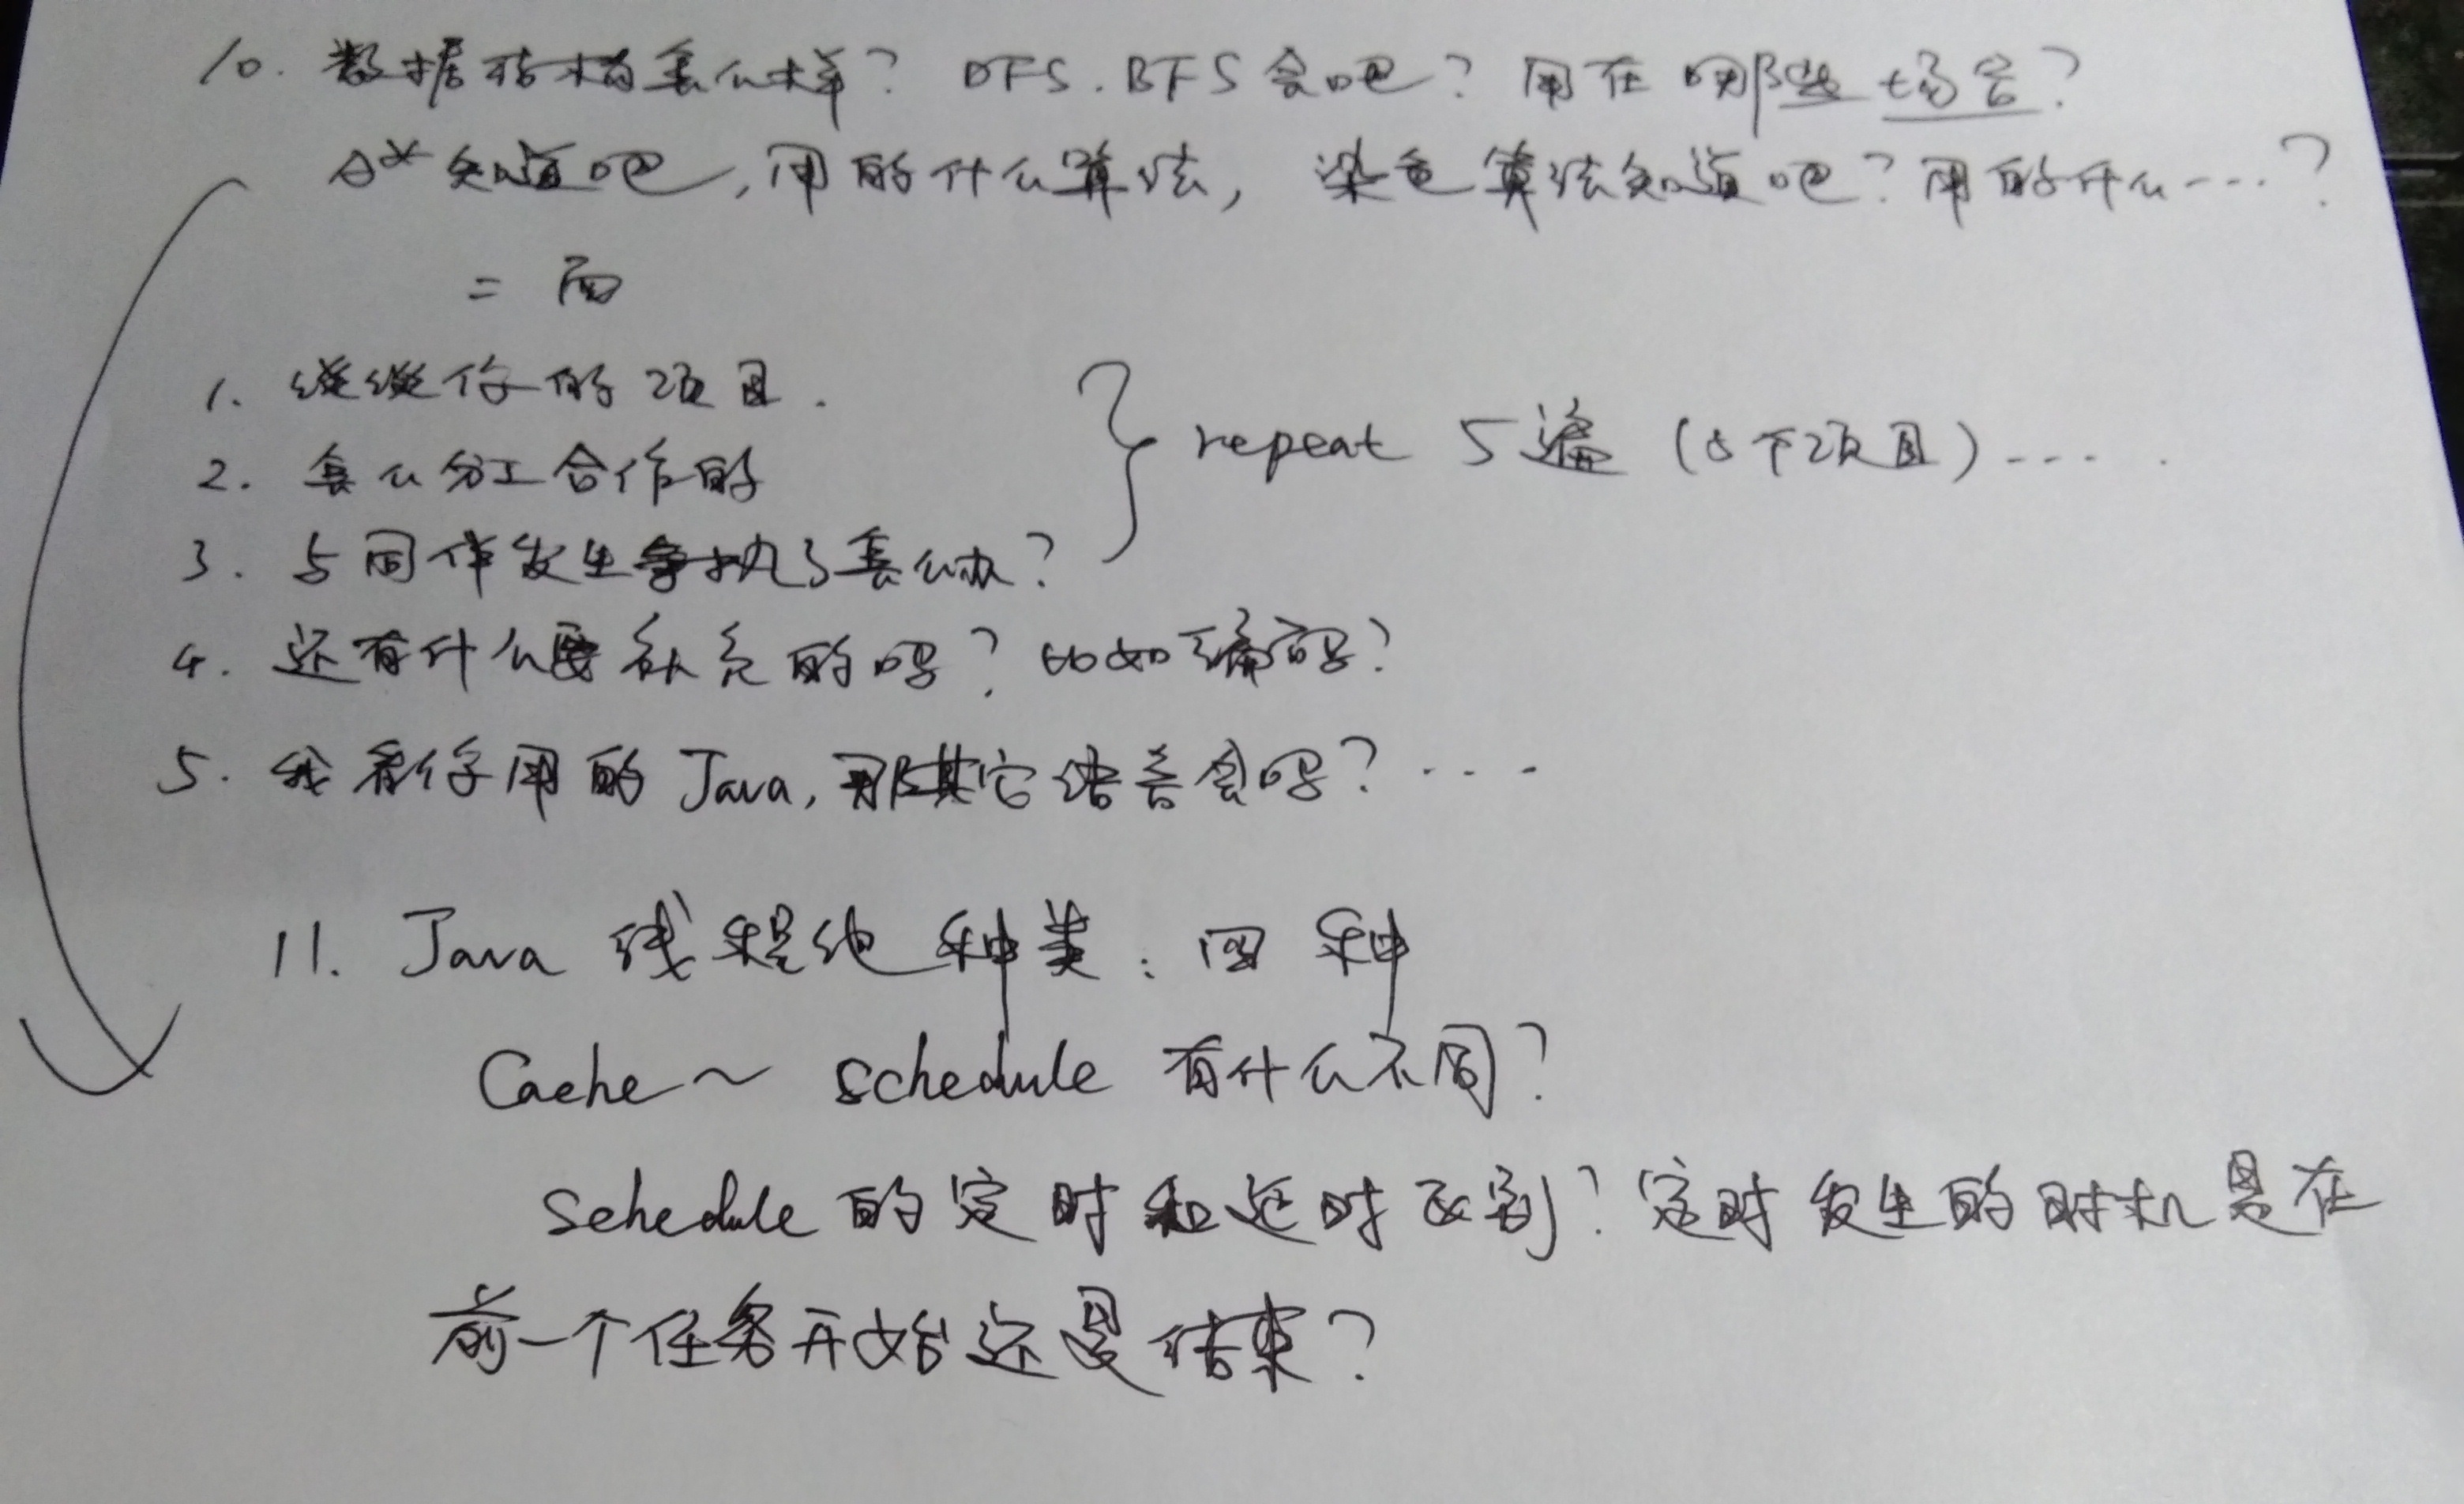 10. 数据结构怎么样？ DFS. BFS 会吧？ 用在哪些场合？
A* 知道吧，用的什么算法， 染色算法知道吧？用的什么....？
二 面
1. 谈谈你的项目.
2. 怎么分工合作的
3. 与同伴发生争执了怎么办？
} repeat 5遍 (5个项目).....
4. 还有什么要补充的吗？ 比如编码？
5. 我看你用的 Java, 那其它语言会吗？...
11. Java 线程池种类: 四种
Cache ~ schedule 有什么不同？
Schedule 的定时和延时区别？定时发生的时机是在
前一个任务开始还是结束？